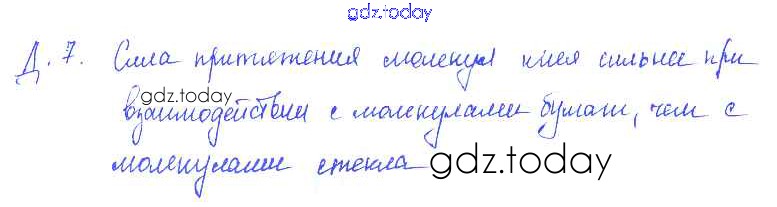 gdz.today
Д. 7. Сила притяжения молекул клея сильнее при
gdz.today
взаимодействии с молекулами бумаги, чем с
молекулами стекла
gdz.today